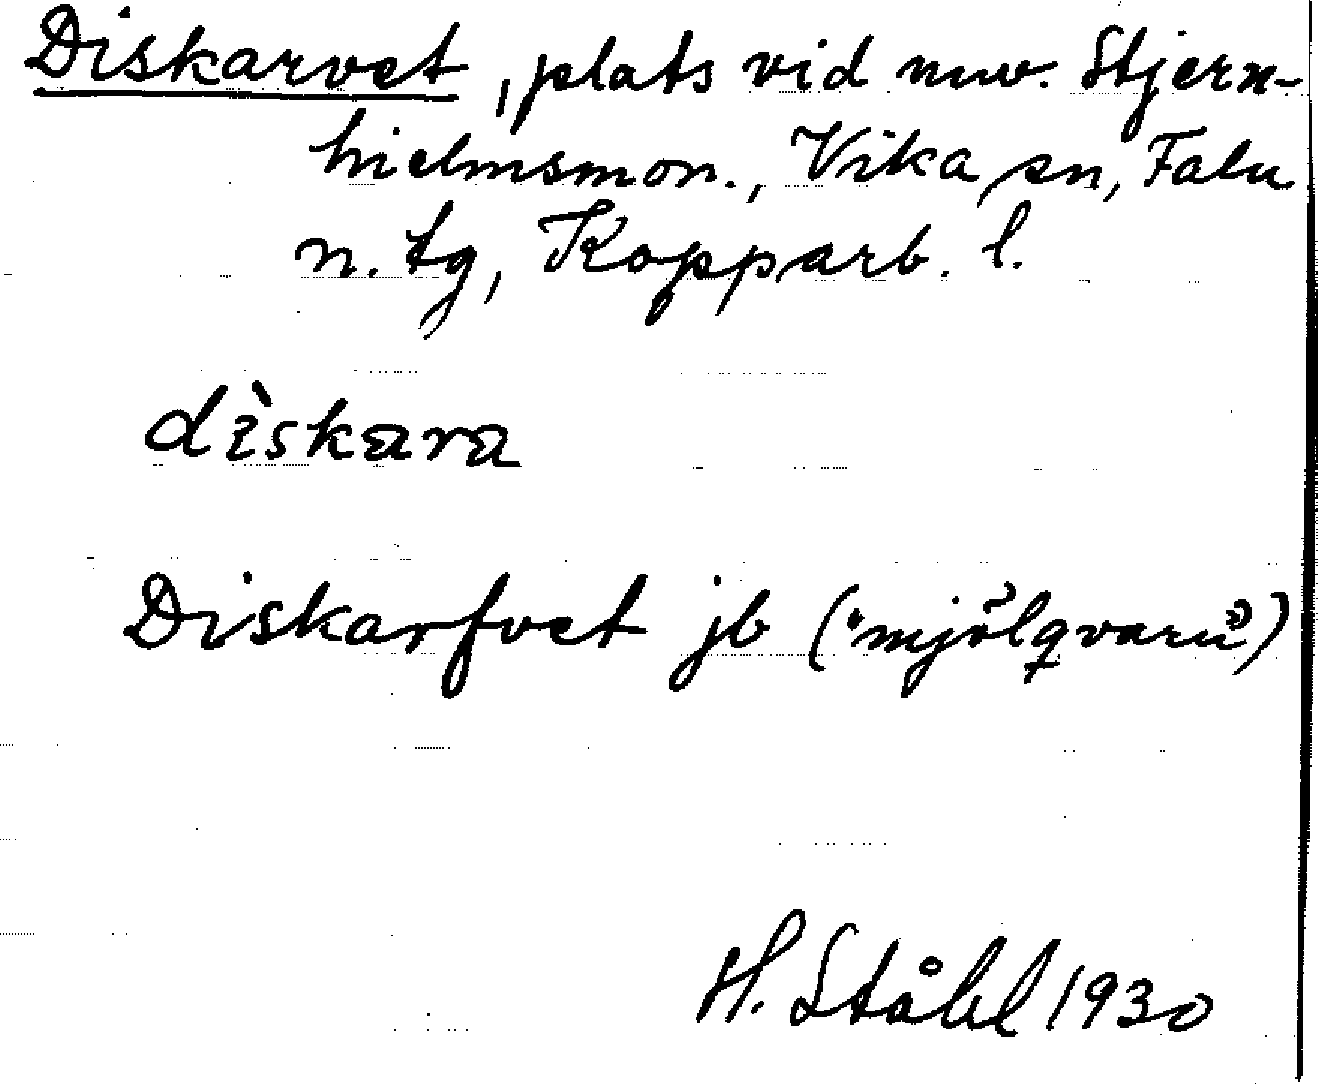 Diskarvet, plats vid nuv. Stjern-
hielmsmon., Vika sn, Falu
n. tg, Kopparb. l.
dìskara
Diskarfvet jb ("mjölqvarn")
H. Ståhl 1930